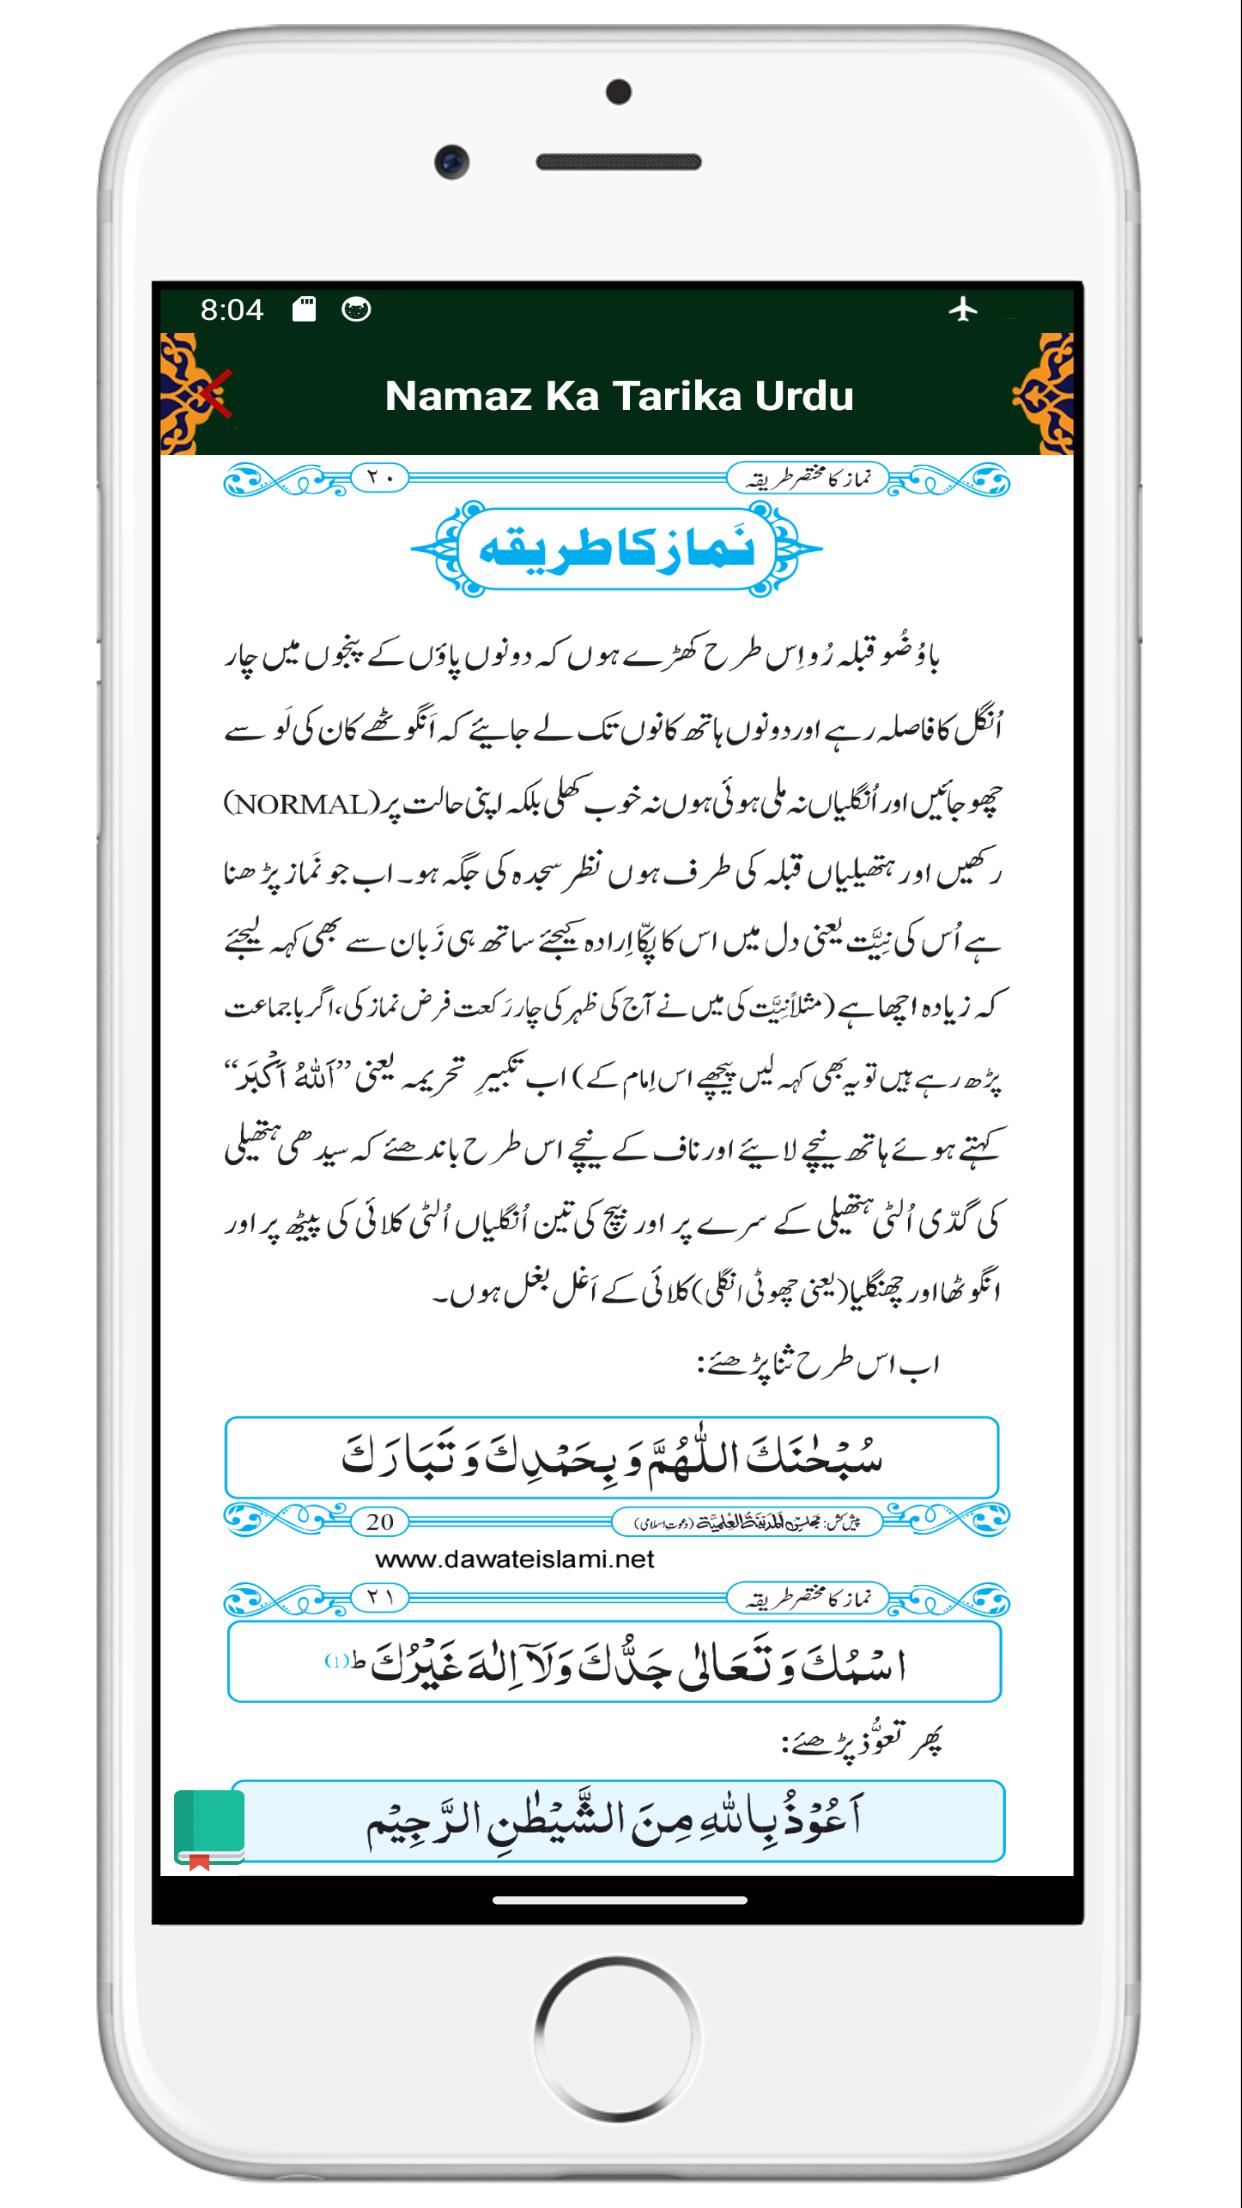 8:04
Namaz Ka Tarika Urdu
نماز کا مختصر طریقہ ۲۰
نَماز کا طریقہ
باوُضُو قبلہ رُو اِس طرح کھڑے ہوں کہ دونوں پاؤں کے پنجوں میں چار
اُنگل کا فاصلہ رہے اور دونوں ہاتھ کانوں تک لے جایئے کہ اَنگوٹھے کان کی لَو سے
چھو جائیں اور اُنگلیاں نہ ملی ہوئی ہوں نہ خوب کھلی بلکہ اپنی حالت پر (NORMAL)
رکھیں اور ہتھیلیاں قبلہ کی طرف ہوں نظر سجدہ کی جگہ ہو۔ اب جو نَماز پڑھنا
ہے اُس کی نِیَّت یعنی دل میں اس کا پکّا اِرادہ کیجئے ساتھ ہی زَبان سے بھی کہہ لیجئے
کہ زیادہ اچھا ہے (مثلاً نِیَّت کی میں نے آج کی ظہر کی چار رَکعت فرض نماز کی، اگر باجماعت
پڑھ رہے ہیں تو یہ بھی کہہ لیں پیچھے اس اِمام کے) اب تکبیرِ تحریمہ یعنی ”اَللّٰهُ اَكْبَر“
کہتے ہوئے ہاتھ نیچے لایئے اور ناف کے نیچے اس طرح باندھئے کہ سیدھی ہتھیلی
کی گدّی اُلٹی ہتھیلی کے سرے پر اور بیچ کی تین اُنگلیاں اُلٹی کلائی کی پیٹھ پر اور
انگوٹھا اور چھنگلیا (یعنی چھوٹی انگلی) کلائی کے اَغل بغل ہوں۔
اب اس طرح ثنا پڑھئے:
سُبْحٰنَكَ اللّٰهُمَّ وَ بِحَمْدِكَ وَ تَبَارَكَ
پیش کش: مجلس المدینۃ العلمیۃ (دعوت اسلامی) 20
www.dawateislami.net
نماز کا مختصر طریقہ ۲۱
اسْمُكَ وَ تَعَالٰى جَدُّكَ وَلَآ اِلٰهَ غَيْرُكَ ط (1)
پھر تعوُّذ پڑھئے:
اَعُوْذُ بِاللّٰهِ مِنَ الشَّيْطٰنِ الرَّجِيْم